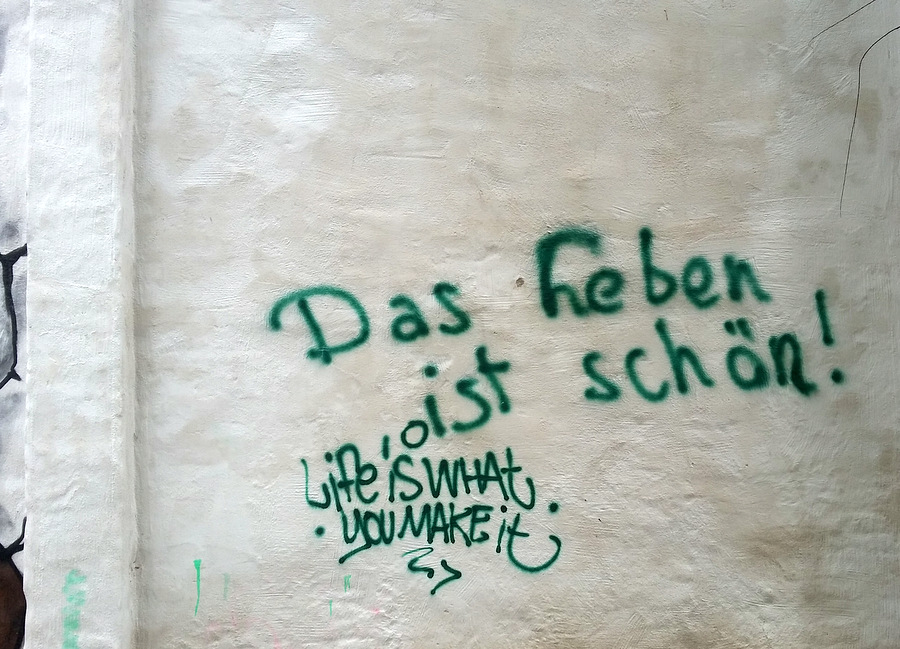 Das Leben
ist schön!
Life is WHAt
YOU MAKE it